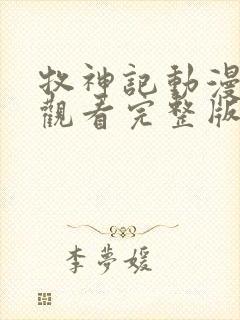 牧神記動漫
觀看完整版
李夢媛